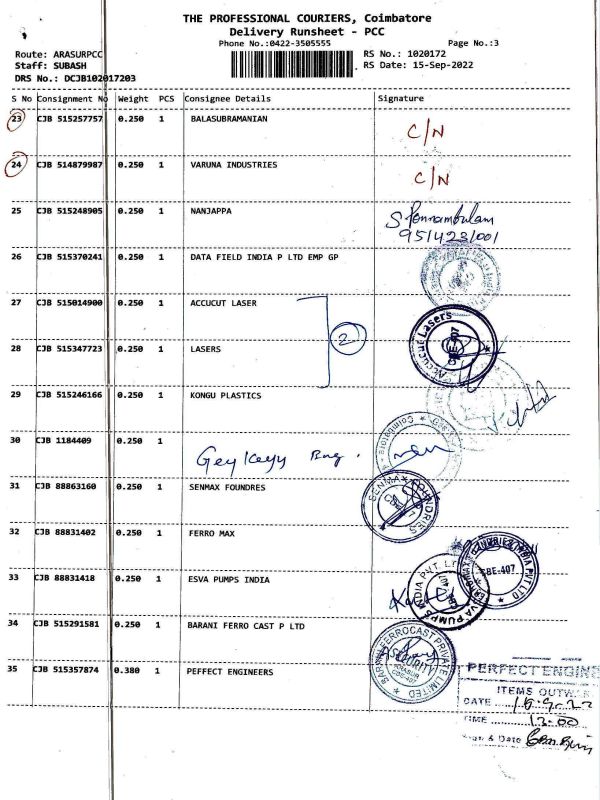 THE PROFESSIONAL COURIERS, Coimbatore
Delivery Runsheet - PCC
Phone No.:0422-3505555
Page No.:3
Route: ARASURPCC
RS No.: 1020172
Staff: SUBASH
RS Date: 15-Sep-2022
DRS No.: DCJB102017203
S No Consignment No Weight PCS Consignee Details Signature
23 CJB 515257757 0.250 1 BALASUBRAMANIAN C/N
24 CJB 514879987 0.250 1 VARUNA INDUSTRIES C/N
25 CJB 515248905 0.250 1 NANJAPPA S. Ponnambulam
951423/001
26 CJB 515370241 0.250 1 DATA FIELD INDIA P LTD EMP GP
27 CJB 515014900 0.250 1 ACCUCUT LASER
2
Accucut Lasers
28 CJB 515347723 0.250 1 LASERS
29 CJB 515246166 0.250 1 KONGU PLASTICS
Coimbatore
30 CJB 1184409 0.250 1
31 CJB 88863160 0.250 1 SENMAX FOUNDRES
SENMAX FOUNDRIES
32 CJB 88831402 0.250 1 FERRO MAX
CBE-407
INDIA PVT LTD
33 CJB 88831418 0.250 1 ESVA PUMPS INDIA
ESVA PUMPS INDIA PVT LTD
34 CJB 515291581 0.250 1 BARANI FERRO CAST P LTD
BARANI FERROCAST PRIVATE LIMITED
SECURITY
35 CJB 515357874 0.380 1 PEFFECT ENGINEERS
PERFECT ENGINE
ITEMS OUTWAR
DATE 15.9.22
TIME 12.00
Sign & Date